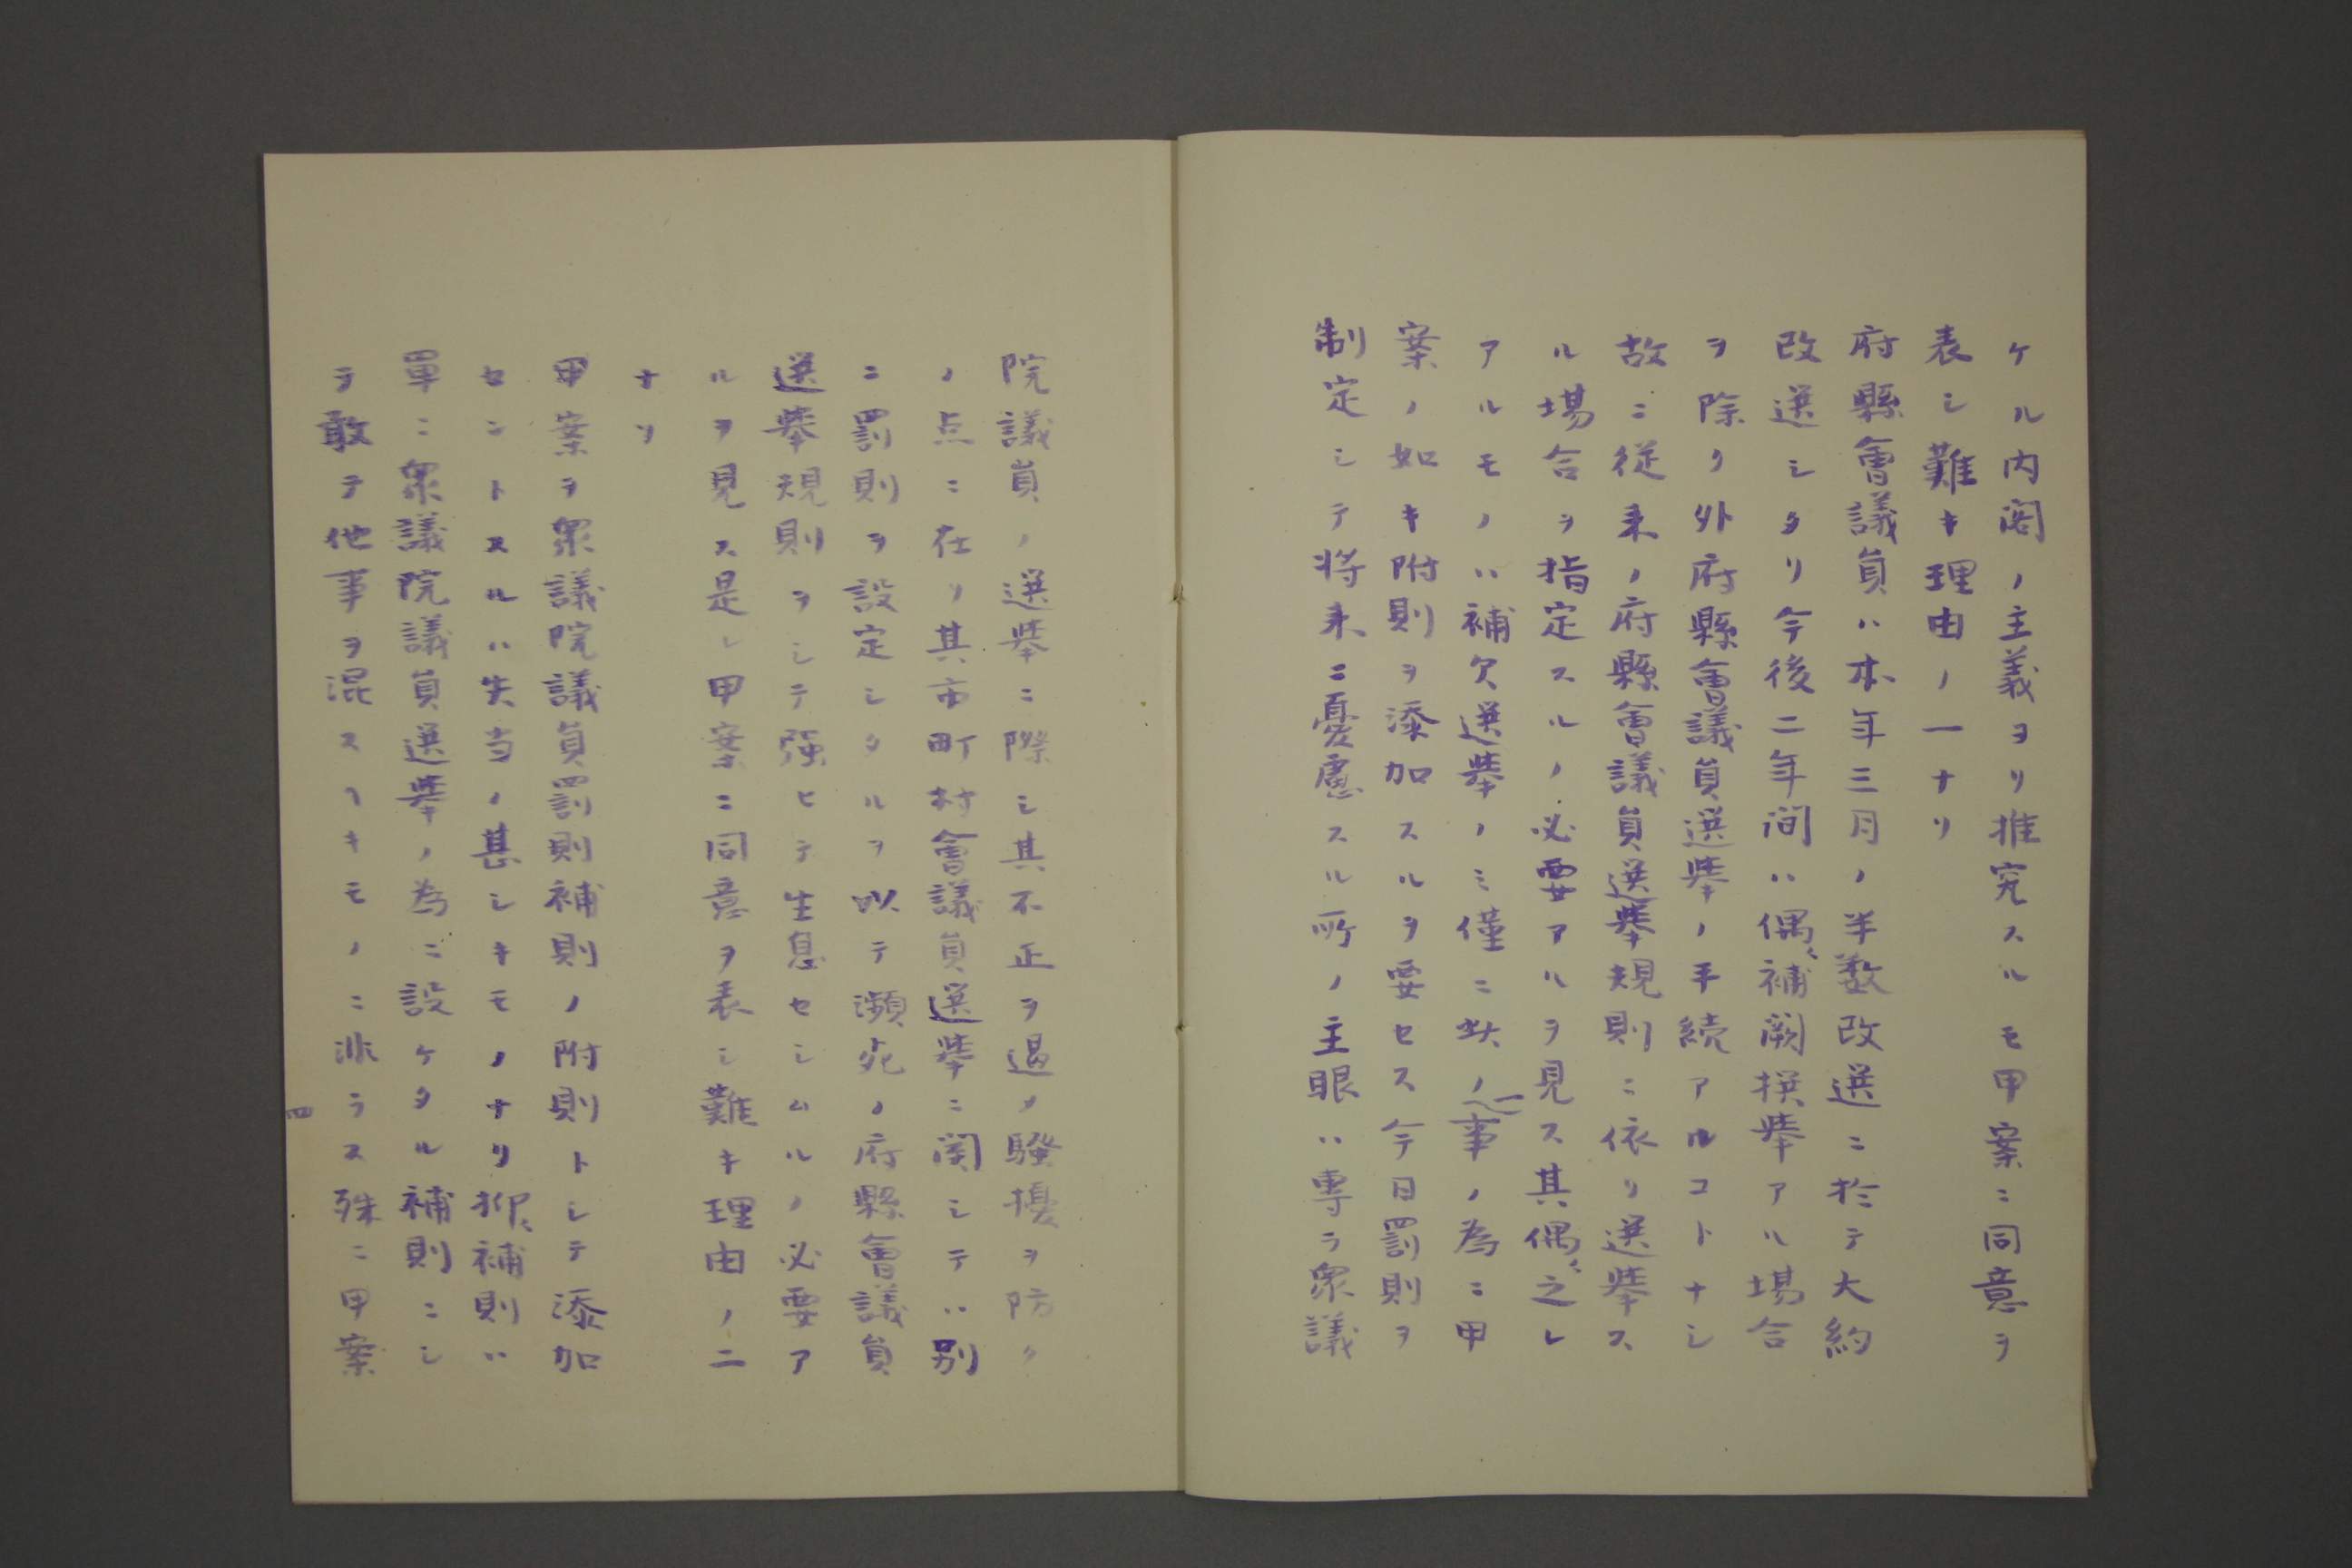 ケル内閣ノ主義ヨリ推究スルモ甲案ニ同意ヲ
表シ難キ理由ノ一ナリ
府縣會議員ハ本年三月ノ半数改選ニ於テ大約
改選シタリ今後二年間ハ偶〻補闕撰挙アル場合
ヲ除ク外府縣會議員選挙ノ手続アルコトナシ
故ニ従来ノ府縣會議員選挙規則ニ依リ選挙ス
ル場合ヲ指定スルノ必要アルヲ見ス其偶〻之レ
アルモノハ補欠選挙ノミ僅ニ此ノ一事ノ為ニ甲
案ノ如キ附則ヲ添加スルヲ要セス今日罰則ヲ
制定シテ将来ニ憂慮スル所ノ主眼ハ専ラ衆議
院議員ノ選挙ニ際シ其不正ヲ遏メ騒擾ヲ防ク
ノ点ニ在リ其市町村會議員選挙ニ関シテハ別
ニ罰則ヲ設定シタルヲ以テ瀕死ノ府縣會議員
選挙規則ヲシテ強ヒテ生息セシムルノ必要ア
ルヲ見ス是レ甲案ニ同意ヲ表シ難キ理由ノ二
ナリ
甲案ヲ衆議院議員罰則補則ノ附則トシテ添加
セントスルハ失当ノ甚シキモノナリ抑〻補則ハ
単ニ衆議院議員選挙ノ為ニ設ケタル補則ニシ
テ敢テ他事ヲ混スヘキモノニ非ラス殊ニ甲案
四